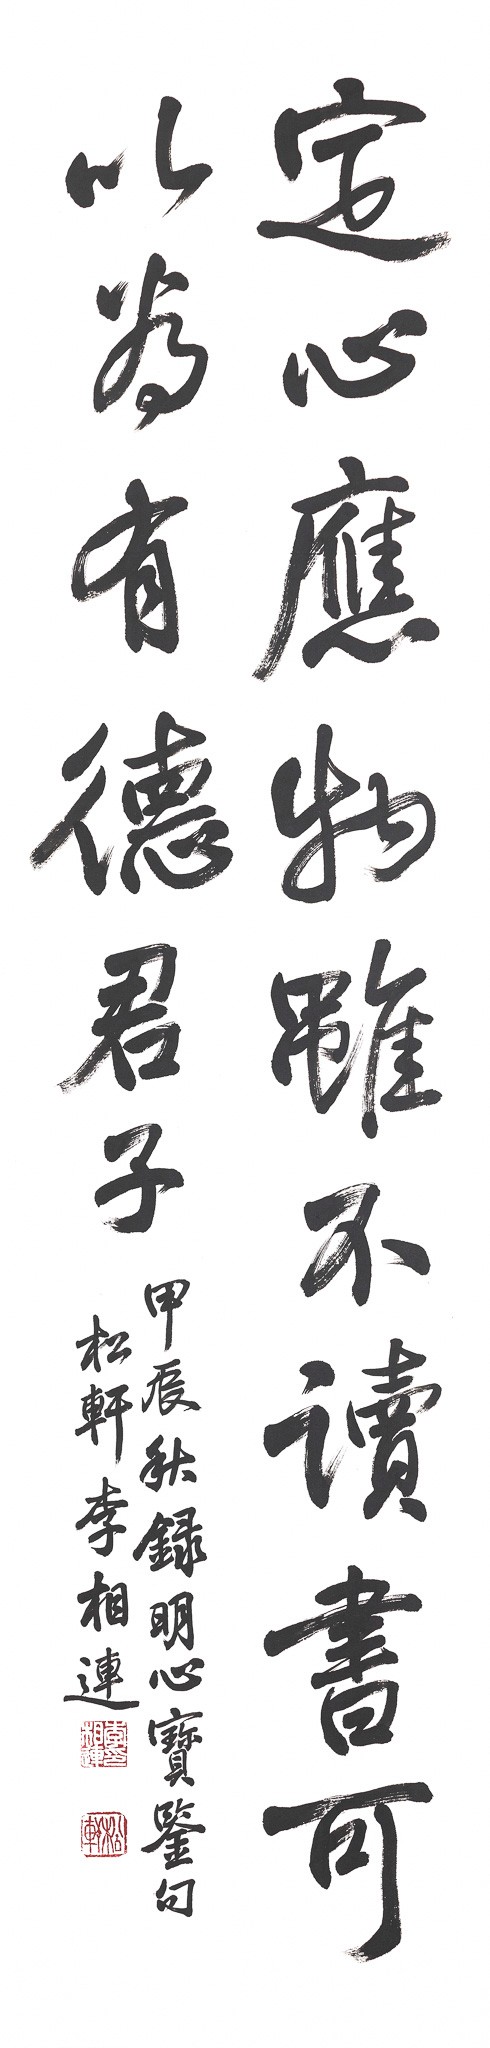 定心應物雖不讀書可
以為有德君子
甲辰秋録明心寶鑒句
松軒李相連
李相連印
松軒